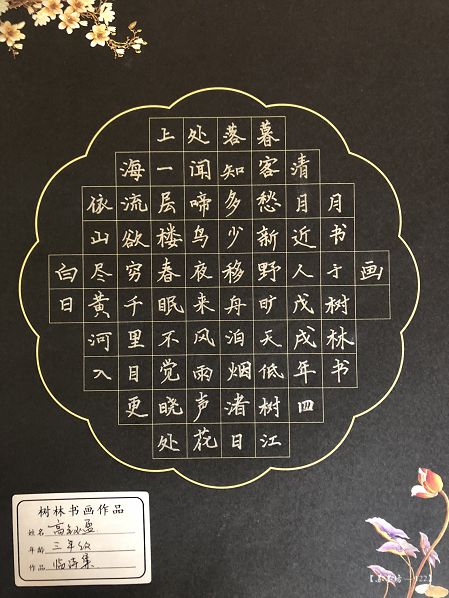 白日
依山尽黄河入
海流欲穷千里目更
上一层楼春眠不觉晓处
处闻啼鸟夜来风雨声花
落知多少移舟泊烟渚日
暮客愁新野旷天低树江
清月近人戊戌年四
月书于树林书
画
树林书画作品
姓名 高
年龄 三年级
作品 临诗集